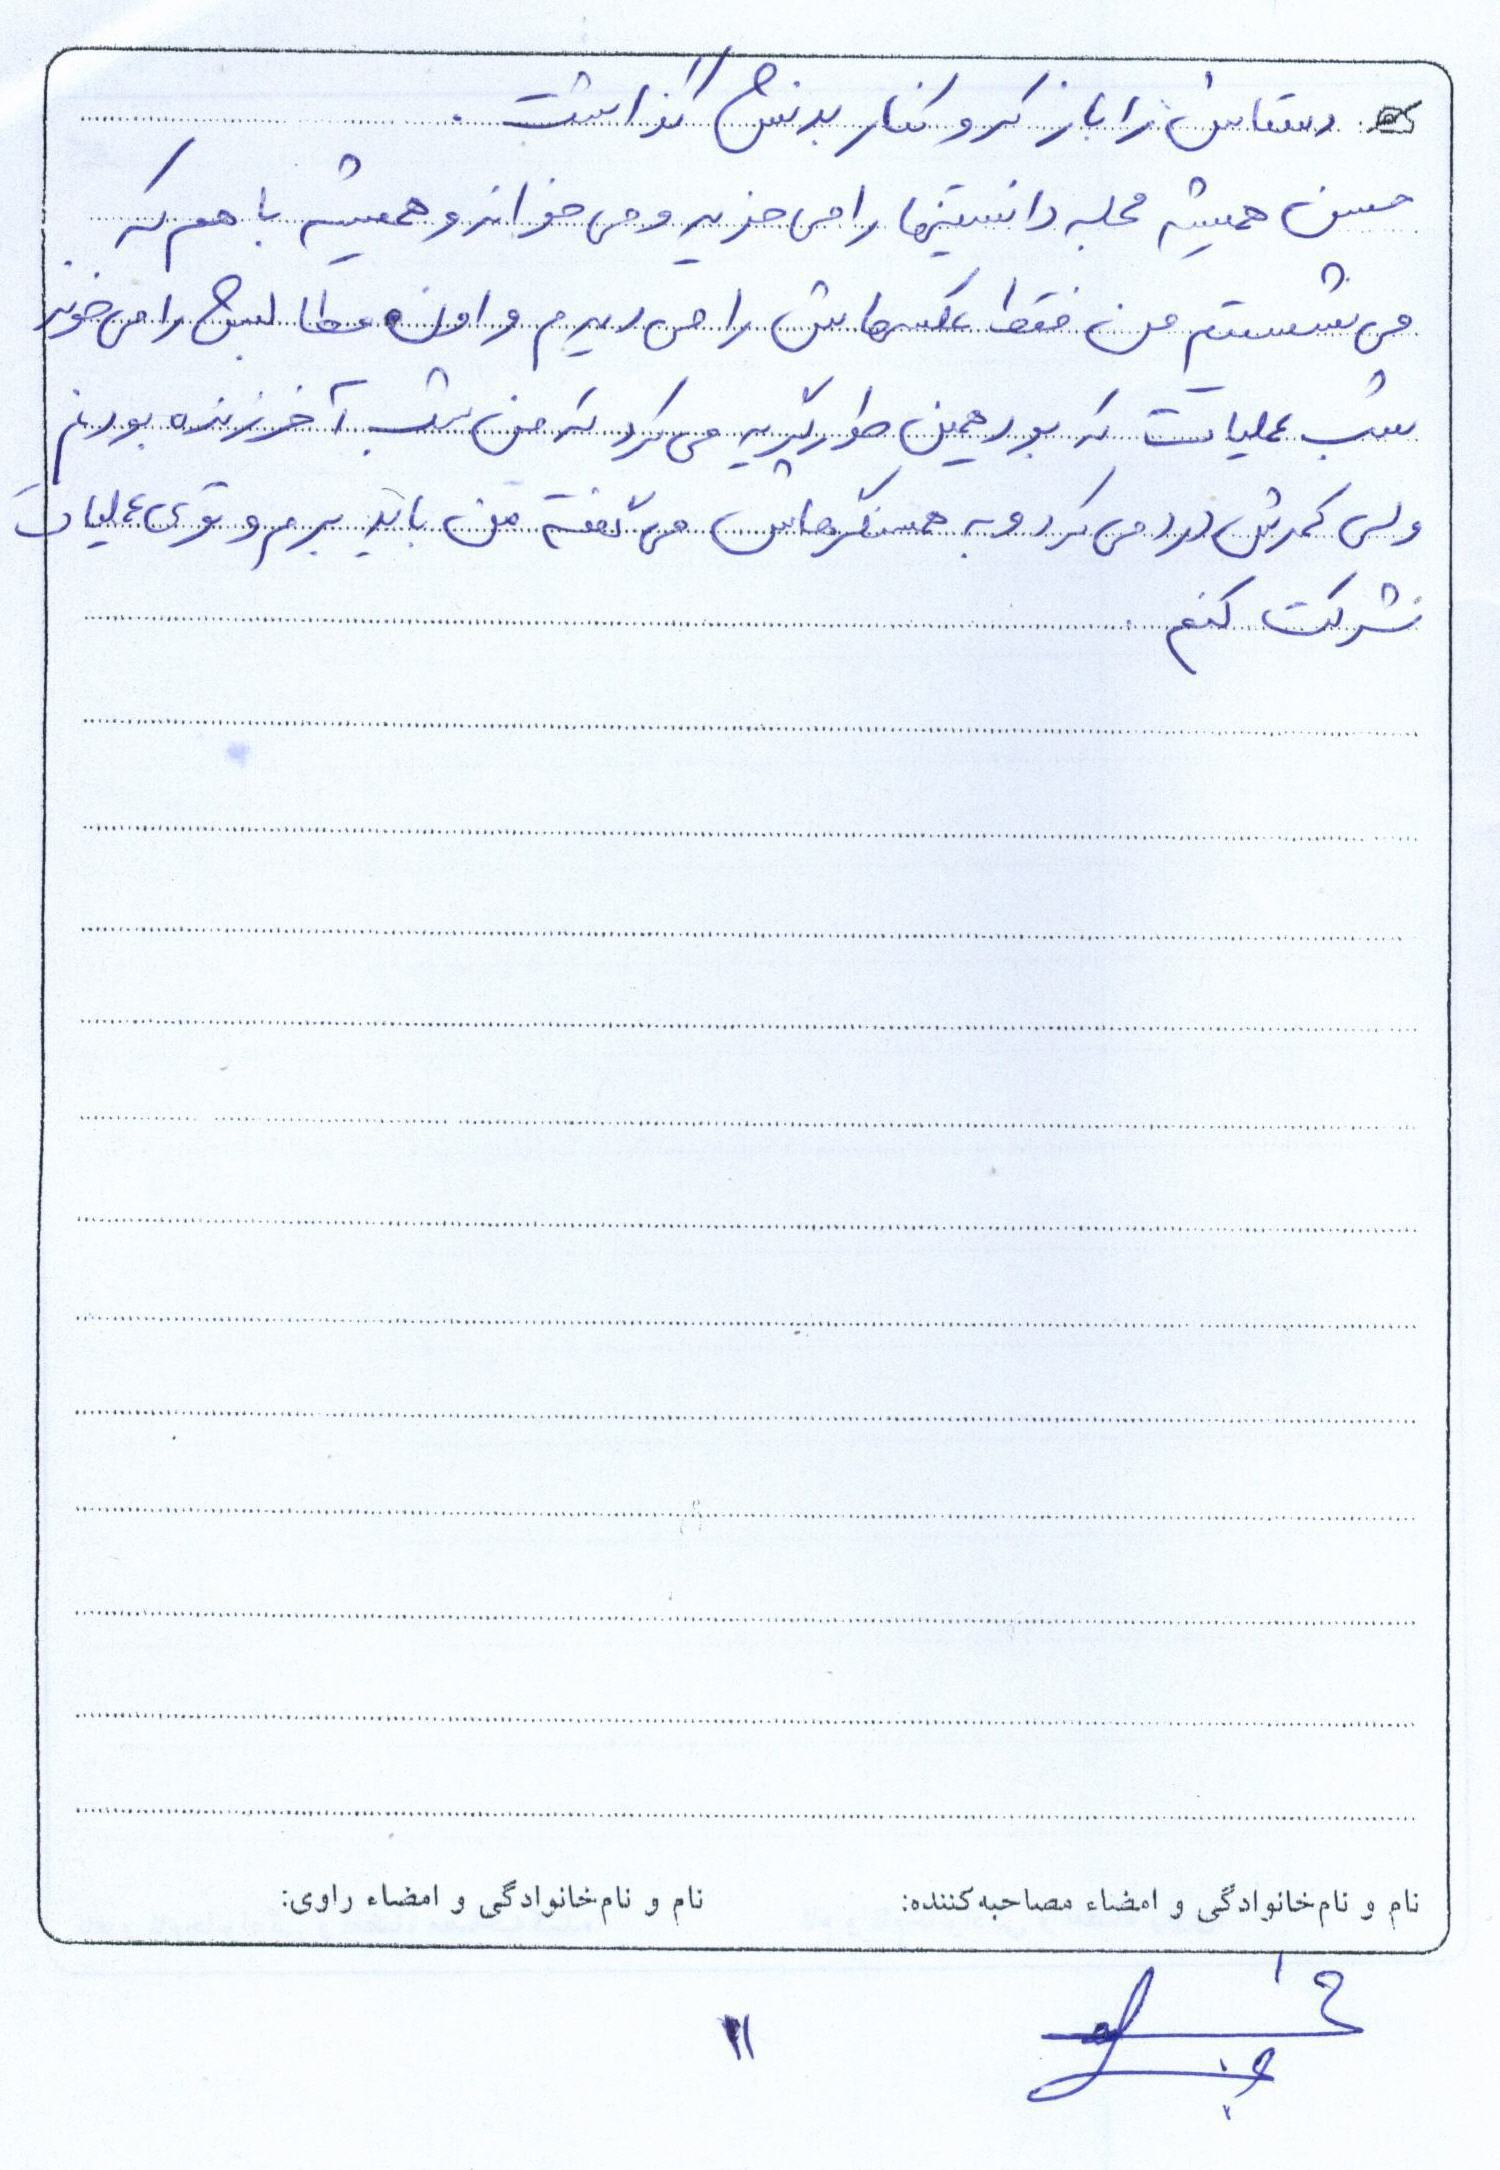 دستاش را باز کرد و کنار بدنش گذاشت .
حسن همیشه مجله دانستنیها را می خرید و می خواند و همیشه با هم که
می نشستیم من فقط عکسهاش را می دیدم و اون مطالبش را می خوند
شب عملیات که بود همین طور گریه می کرد که من شب آخر زنده بودنم
ولی کمرش درد می کرد و به همسنگرهاش می گفته من باید برم و توی عملیات
شرکت کنم .
نام و نام‌خانوادگی و امضاء مصاحبه‌کننده: نام و نام‌خانوادگی و امضاء راوی:
۱۱